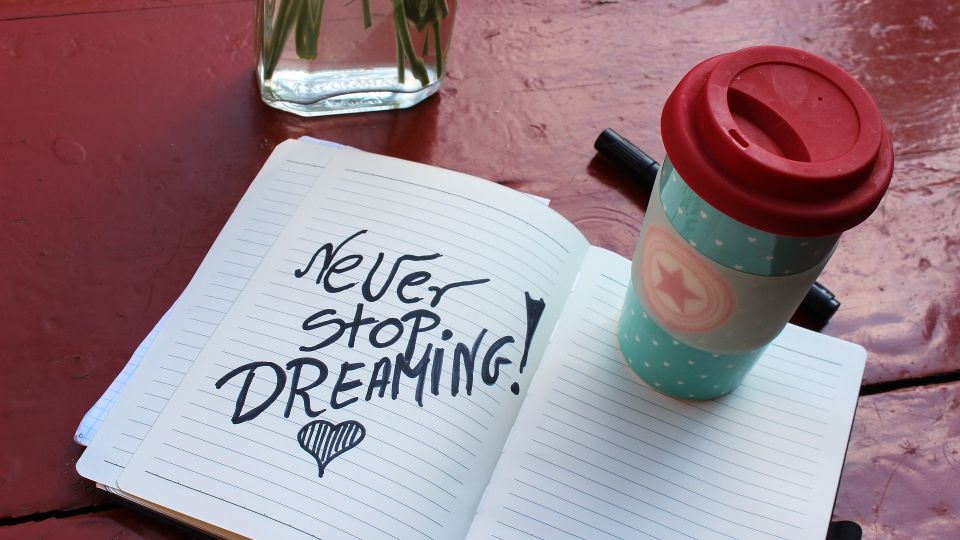 Never
Stop
DREAMiNG!